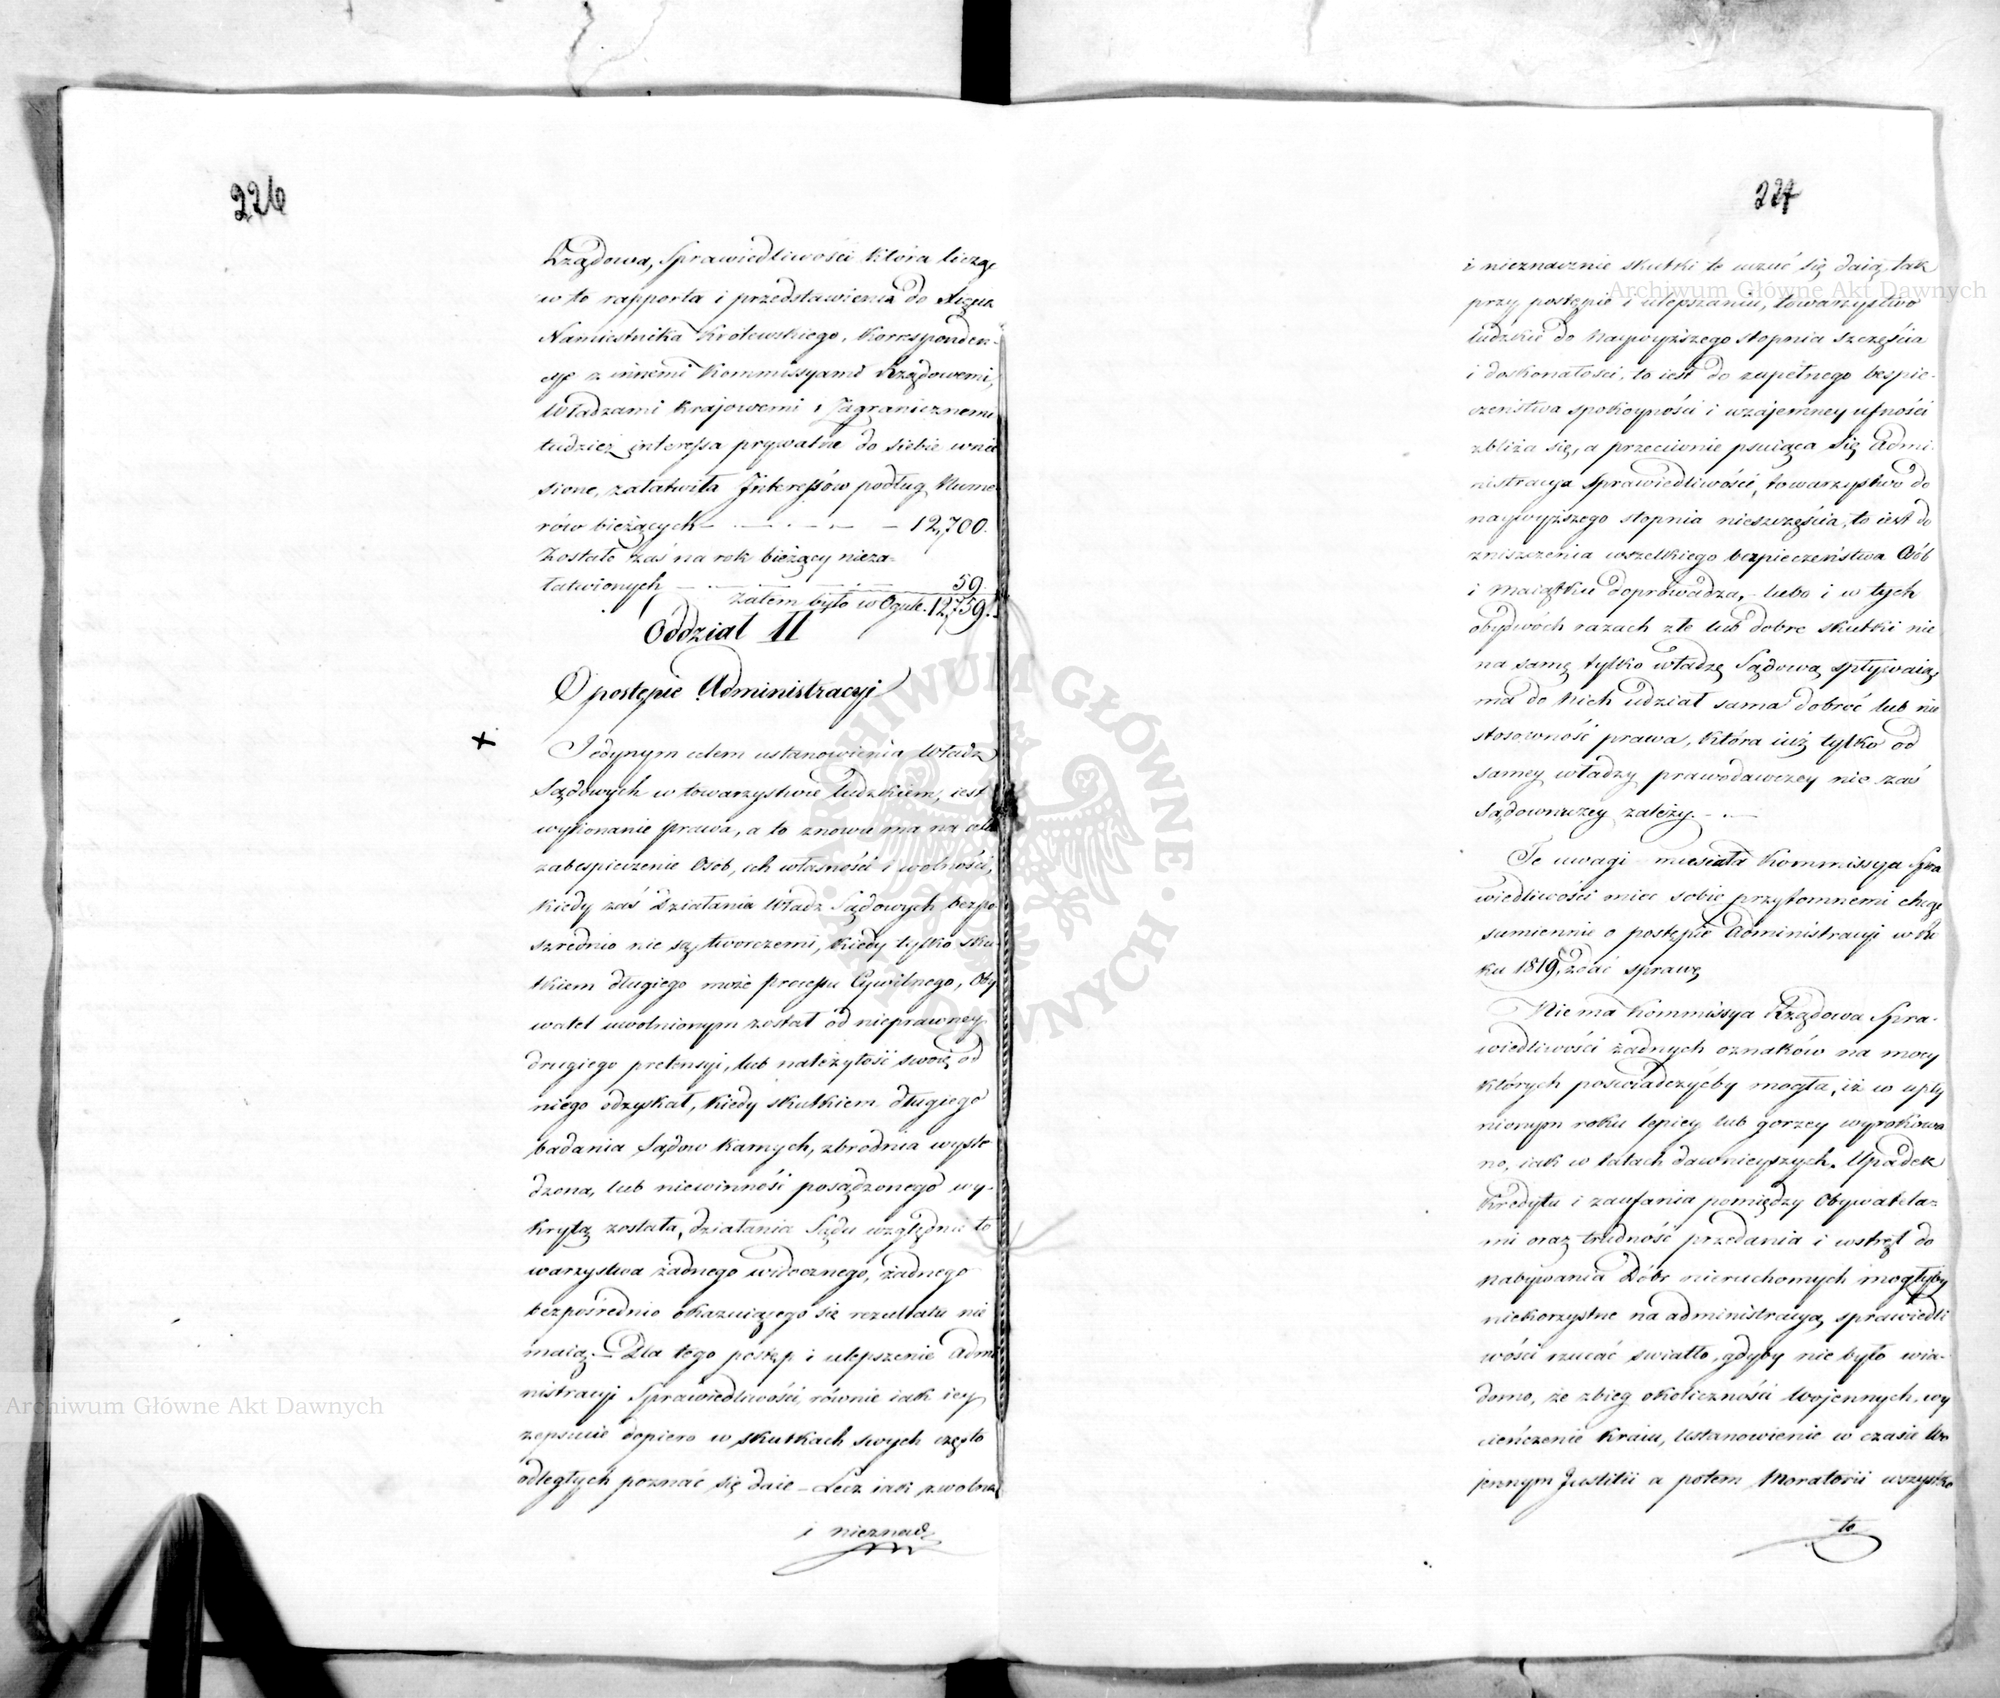 226
Rządowa, Sprawiedliwości która licząc
w to rapporta i przedstawienia do Xięcia
Namiestnika Królewskiego, Korresponden-
cye z innemi Kommissyami Rządowemi,
Władzami Krajowemi i Zagranicznemi
tudzież interessa prywatne do siebie wnie
sione, załatwiła Interessów podług Nume
rów bieżących — 12,700.
Zostało zaś na rok bieżący nieza-
łatwionych — 59.
zatem było w Ogule. 12,759.
Oddział II
O postępie Administracyi
Jedynym celem ustanowienia Władz
Sądowych w towarzystwie ludzkiem, iest
wykonanie prawa, a to znowu ma na celu
zabespieczenie Osob, ich własności i wolności,
kiedy zaś Działania Władz Sądowych bezpo
szrednio nie są tworczemi, kiedy tylko sku
tkiem długiego może processu Cywilnego, Oby
watel uwolnionym został od nieprawney
drugiego pretensyi, lub należytość swoię od
niego odzyskał, kiedy skutkiem długiego
badania Sądow Karnych, zbrodnia wyśle
dzona, lub niewinność posądzonego wy-
krytą została, działania Sądu względnie to
warzystwa żadnego widocznego, żadnego
bezpośrednio okazuiącego się rezultatu nie
maią. — Dla tego postęp i ulepszenie Admi
nistracyi Sprawiedliwości, równie iak iey
zepsucie dopiero w skutkach swych często
odległych poznać się daie — Lecz iak zwolna
i nieznacz
227
i nieznacznie skutki te uczuć się daią, tak
przy postępie i ulepszaniu, towarzystwo
ludzkie do naywyższego stopnia szczęścia
i doskonałości, to iest do zupełnego bespie-
czeństwa spokoyności i wzajemney ufności
zbliża się, a przeciwnie psuiąca się Admi-
nistracya Sprawiedliwości, towarzystwo do
naywyższego stopnia nieszczęścia, to iest do
zniszczenia wszelkiego bezpieczeństwa Osób
i Maiątku doprowadza, — lubo i w tych
obydwóch razach złe lub dobre skutki nie
na samę tylko władzę Sądową spływaią,
ma do Nich udział sama dobroć lub nie
stosowność prawa, która iuż tylko od
samey władzy prawodawczey nie zaś
sądowniczey zależy. —
Te uwagi musiała Kommissya Spra
wiedliwości mieć sobie przytomnemi chcąc
sumiennie o postępie Administracyi w Ro
ku 1819, zdać sprawę
Nie ma Kommissya Rządowa Spra-
wiedliwości żadnych oznaków na mocy
których poświadczyćby mogła, iż w upły
nionym roku lepiey lub gorzey wyrokowa
no, iak w latach dawnieyszych. Upadek
kredytu i zaufania pomiędzy Obywatela-
mi oraz trudność przedania i wstręt do
nabywania Dóbr nieruchomych mogłyby
niekorzystne na administracyą sprawiedli
wości rzucać swiatło, gdyby nie było wia-
domo, że zbieg okoliczności Wojennych, wy
cieńczenie Kraiu, Ustanowienie w czasie Wo
jennym Justitii a potem Moratorii wszystko
to
Archiwum Główne Akt Dawnych
Archiwum Główne Akt Dawnych
ARCHIWUM GŁÓWNE AKT DAWNYCH